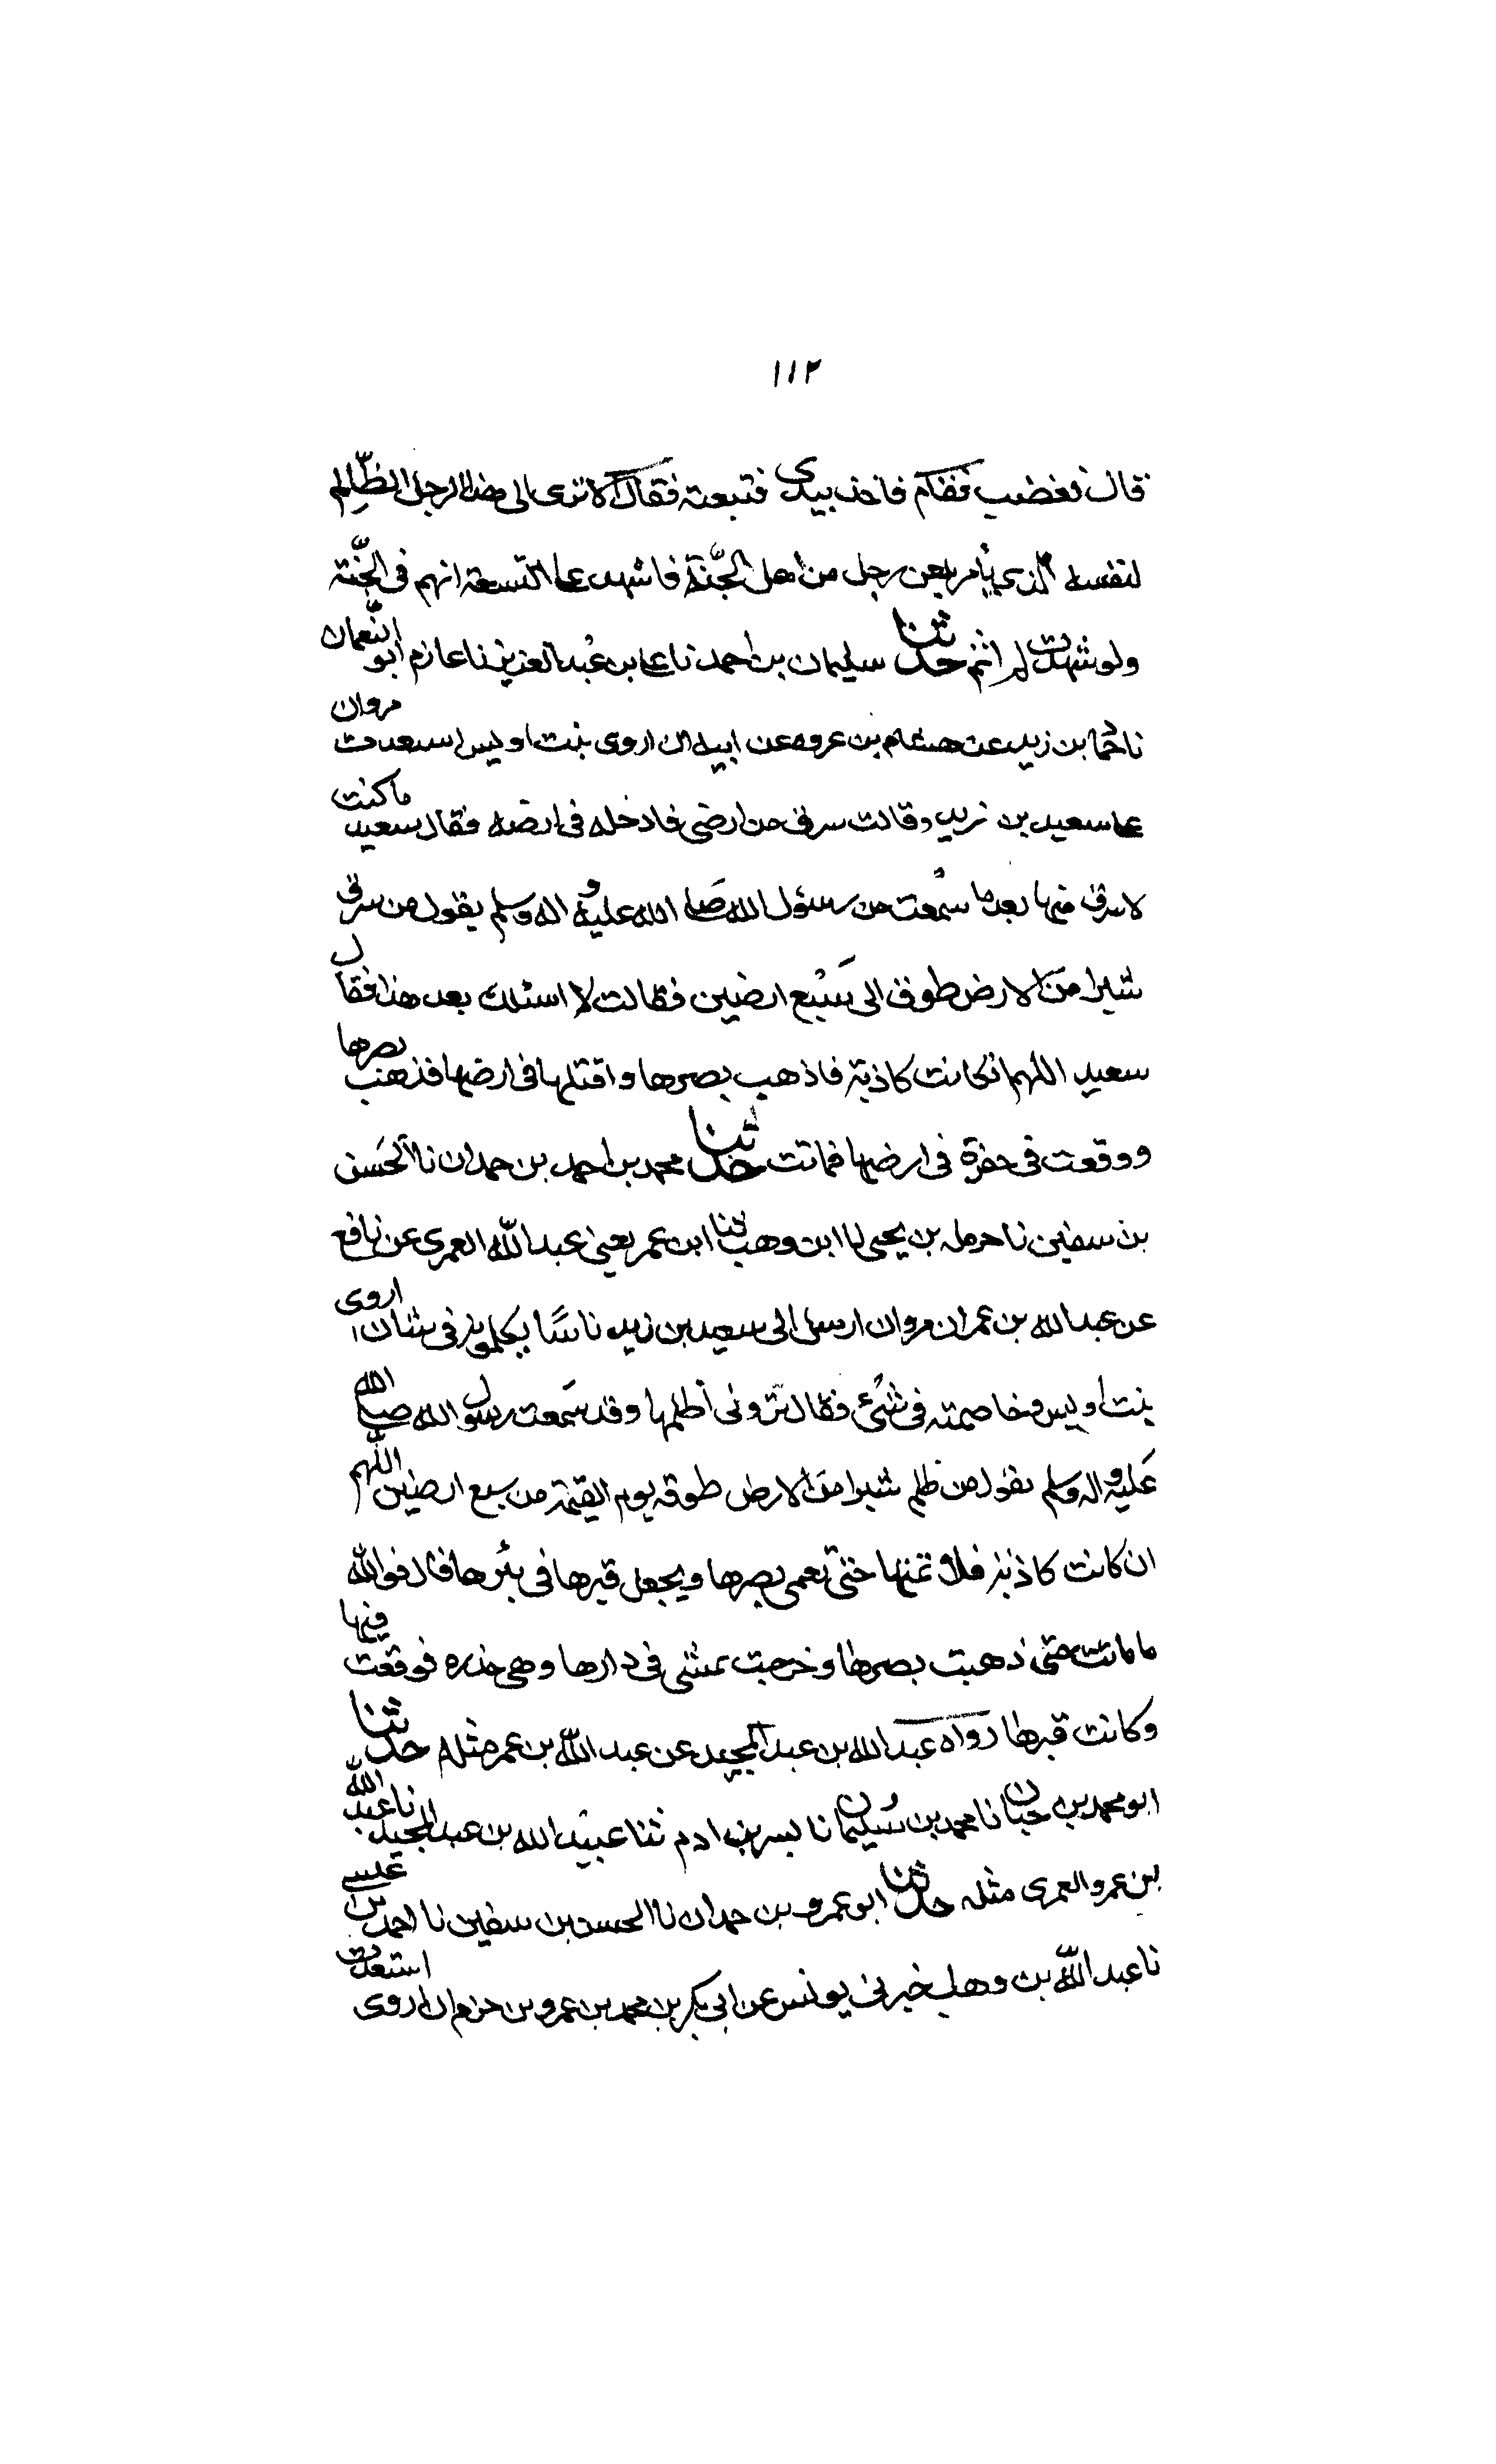 ١١٢
قال فغضب فقام فاخذ بيدى فتبعته فقال الا ترى الى هذا الرجل الظالم
لنفسه الذى يأمر بلعن رجل من اهل الجنة فاشهد على التسعة انهم فى الجنة
ولو شهدت لم اثم حدثنا سليمان بن احمد نا على بن عبد العزيز نا عازم ابو النعمان
نا حماد بن زيد عن هشام بن عروه عن ابيه ان اروى بنت اويس استعدت مروان
على سعيد بن زيد وقالت سرق من ارضى فادخله فى ارضه فقال سعيد ما كنت
لاسرق منها بعد ما سمعت من رسول الله صلى الله عليه و اله وسلم يقول من سرق
شبرا من الارض طوق الى سبع ارضين فقالت لا اسئلك بعد هذا فقال
سعيد اللهم ان كانت كاذبة فاذهب بصرها واقتلها فى ارضها فذهب بصرها
ووقعت فى حفرة فى ارضها فماتت حدثنا محمد بن احمد بن حمدان نا الحسن
بن سفين نا حرمله بن يحيى نا ابن وهب ثنا ابن عمر يعنى عبد الله العمرى عن نافع
عن عبد الله بن عمر ان مروان ارسل الى سعيد بن زيد ناسا يكلمونه فى شان اروى
بنت اويس وخاصمته فى شئ فقال ترونى اظلمها وقد سمعت رسول الله صلى الله
عليه و اله وسلم يقول من ظلم شبرا من الارض طوقه يوم القيمة من سبع ارضين اللهم
ان كانت كاذبة فلا تمتها حتى تعمى بصرها ويجعل قبرها فى بئرها قال فوالله
ما ماتت حتى ذهبت بصرها وخرجت تمشى فى دارها وهى حذره فوقعت فيها
وكانت قبرها رواه عبد الله بن عبد المجيد عن عبد الله بن عمر مثله حدثنا
ابو محمد بن حبان نا محمد بن سليمان نا بسر بن ادم ثنا عبيد الله بن عبد المجيد نا عبد الله
بن عمر والعمرى مثله حدثنا ابو عمرو بن حمدان نا الحسن بن سفين نا احمد بن عيسى
نا عبد الله بن وهب اخبرنى يونس عن ابى بكر بن محمد بن عمرو بن حزم ان اروى استعدت